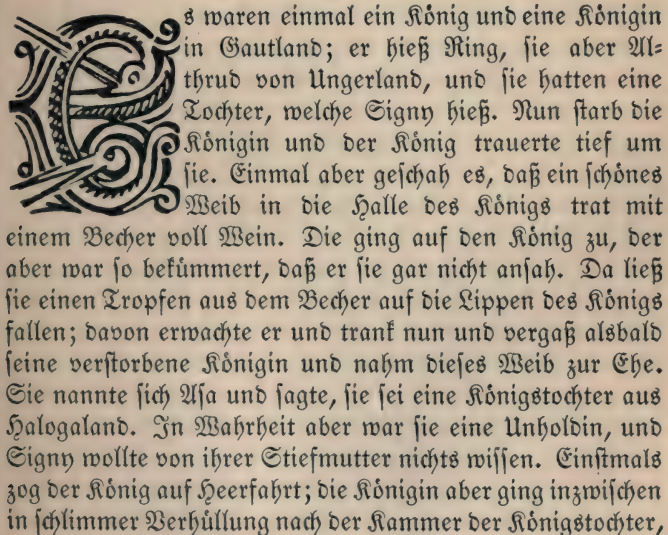 Es waren einmal ein König und eine Königin
in Gautland; er hieß Ring, sie aber Al-
thrud von Ungerland, und sie hatten eine
Tochter, welche Signy hieß. Nun starb die
Königin und der König trauerte tief um
sie. Einmal aber geschah es, daß ein schönes
Weib in die Halle des Königs trat mit
einem Becher voll Wein. Die ging auf den König zu, der
aber war so bekümmert, daß er sie gar nicht ansah. Da ließ
sie einen Tropfen aus dem Becher auf die Lippen des Königs
fallen; davon erwachte er und trank nun und vergaß alsbald
seine verstorbene Königin und nahm dieses Weib zur Ehe.
Sie nannte sich Asa und sagte, sie sei eine Königstochter aus
Halogaland. In Wahrheit aber war sie eine Unholdin, und
Signy wollte von ihrer Stiefmutter nichts wissen. Einstmals
zog der König auf Heerfahrt; die Königin aber ging inzwischen
in schlimmer Verhüllung nach der Kammer der Königstochter,